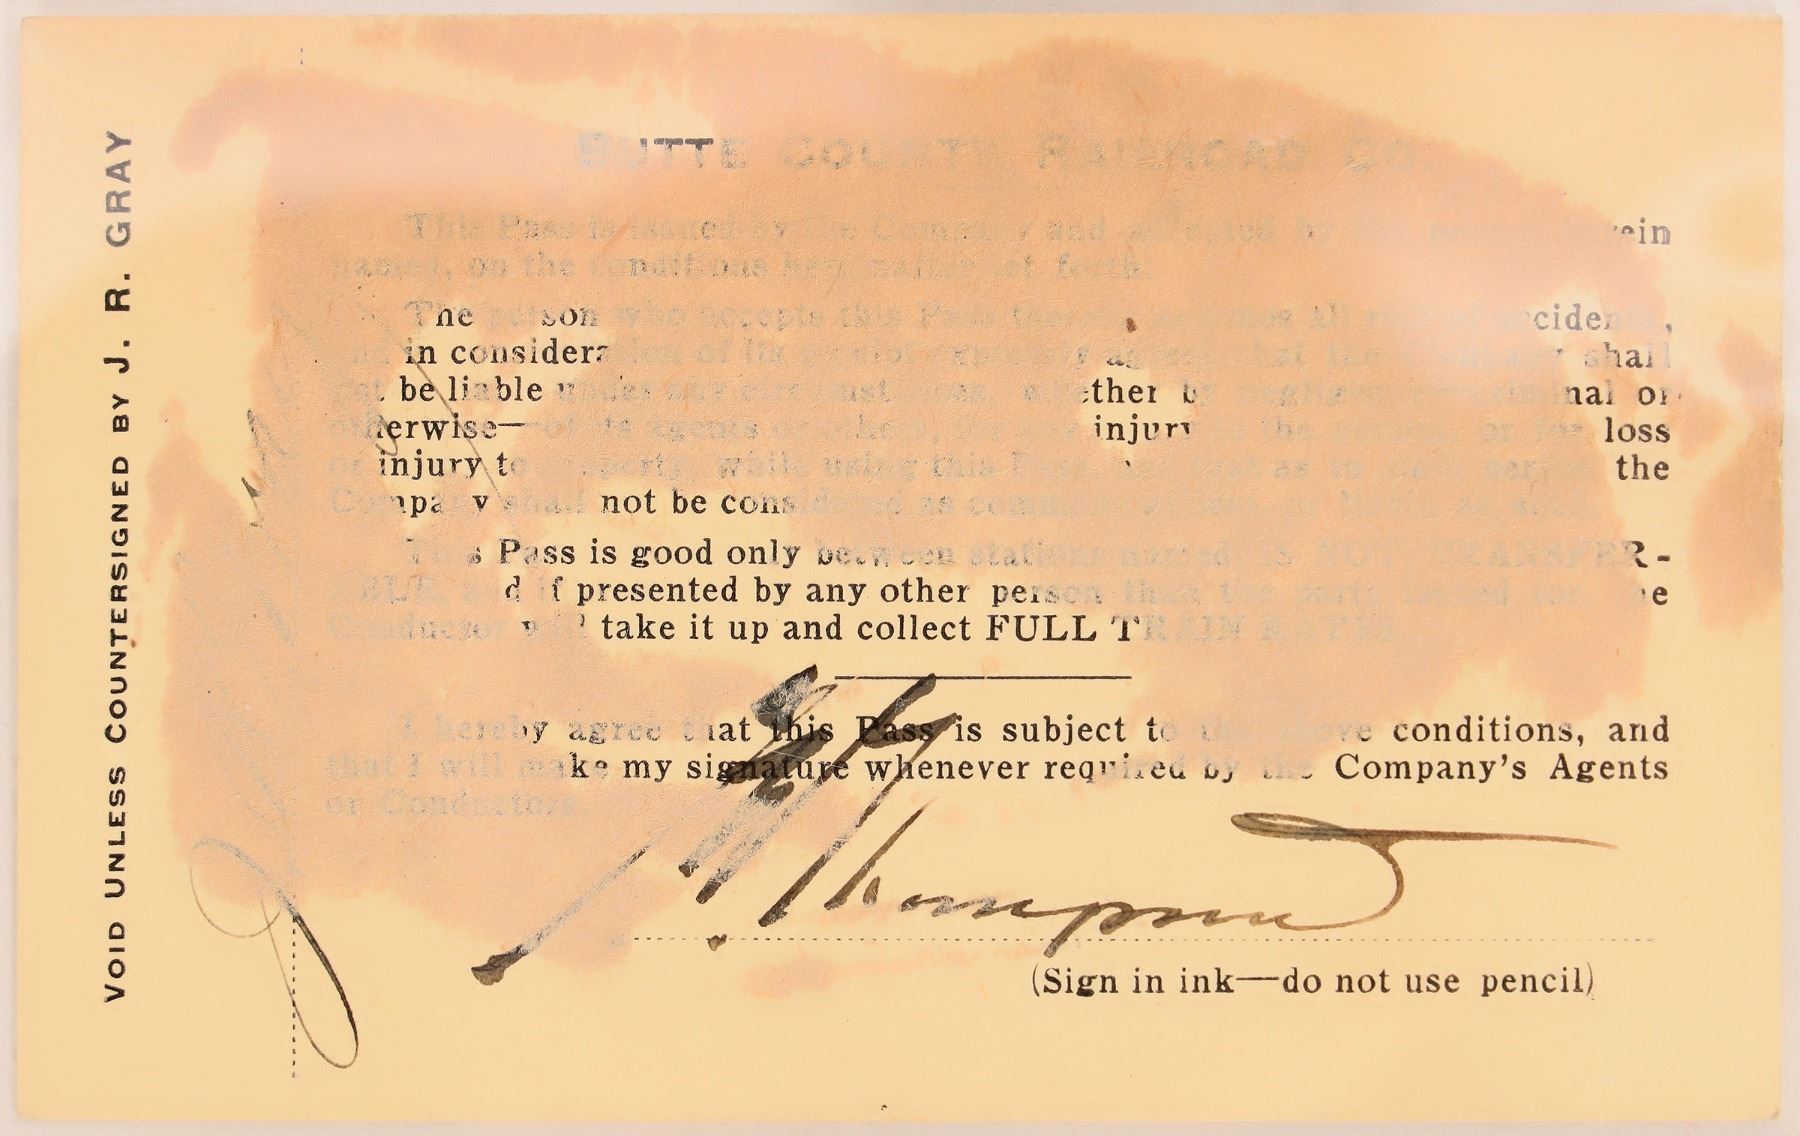 VOID UNLESS COUNTERSIGNED BY J. R. GRAY
BUTTE COUNTY RAILROAD CO.
This Pass is issued by the Company and accepted by herein
named, on the conditions hereinafter set forth:
The person who accepts this Pass assumes all accidents,
and in consideration of its expressly agrees that the Company shall
not be liable under any circumstances, whether by negligence criminal or
otherwise—of its agents or others, for any injury to the or for loss
or injury to property, while using this as to the
Company shall not be considered as common as such.
This Pass is good only between stations named, IS NOT TRANSFER-
ABLE, and if presented by any other person than the party issued for, the
Conductor will take it up and collect FULL TRAIN
I hereby agree that this Pass is subject to the above conditions, and
that I will make my signature whenever required by the Company's Agents
or Conductors.
Thompson
(Sign in ink—do not use pencil)